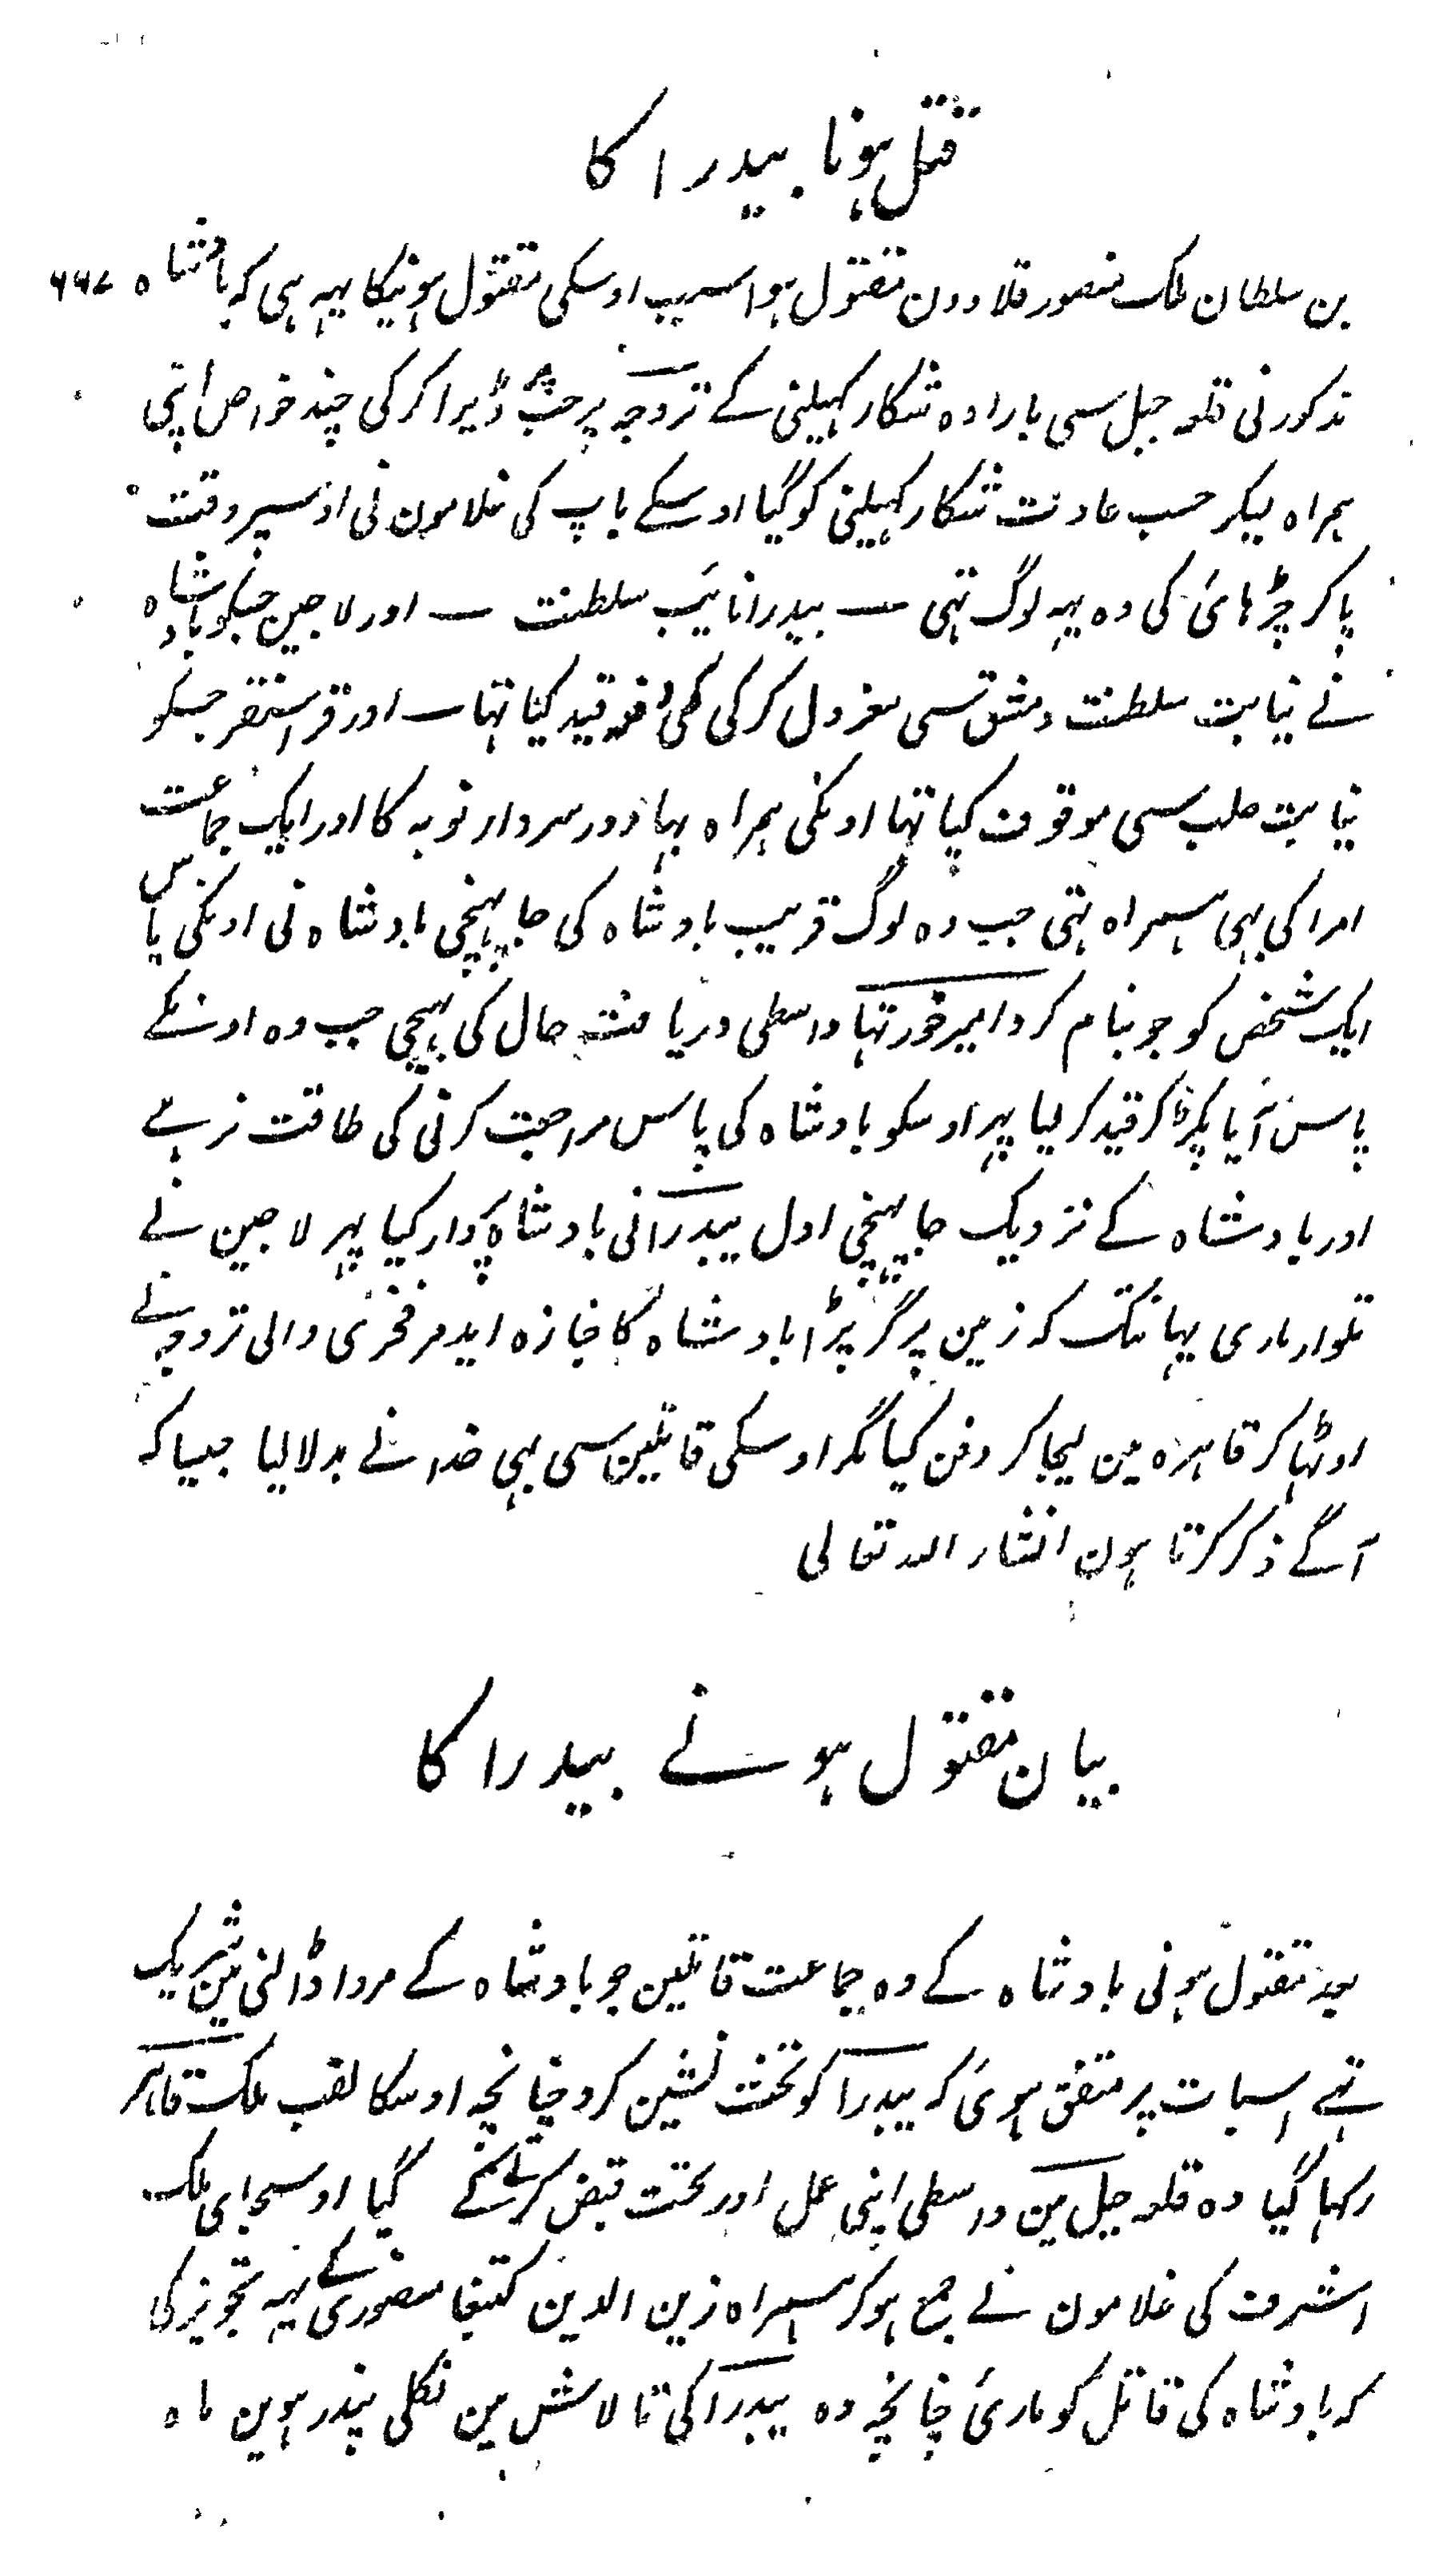 قتل ہونا بیدرا کا
بن سلطان ملک منصور قلاوون مقتول ہوا سبب اوسکی مقتول ہونیکا یہہ ہی کہ بادشاہ ۶۶۷
مذکور نی قلعہ جبل سی بارادہ شکار کہیلنی کے تروجہ پر ڈیرا کر کی چند خواص اپنی
ہمراہ لیکر حسب عادت شکار کہیلنی کو گیا اوسکے باپ کی غلامون نی اوسپر وقت
پا کر چڑہائی کی وہ یہہ لوگ تہی بیدرا نایٔب سلطنت اور لاجین جسکو بادشاہ
نے نیابت سلطنت دمشق سی معزول کر کی کئی دفعہ قید کیا تہا اور قراسنقر جسکو
نیابت حلب سی موقوف کیا تہا اونکی ہمراہ بہادور سردار نوبہ کا اور ایک جماعت
امرا کی بہی ہمراہ تہی جب وہ لوگ قریب بادشاہ کی جا پہنچی بادشاہ نی اونکی پاس
ایک شخص کو جو بنام کرد امیرخور تہا واسطی دریافت حال کی بہیجی جب وہ اونکے
پاس آیا پکڑ کر قید کر لیا پہر اوسکو بادشاہ کی پاس مراجعت کرنی کی طاقت نرہے
اور بادشاہ کے نزدیک جا پہنچی اول بیدرا نی بادشاہ پر وار کیا پہر لاجین نے
تلوار ماری یہانتک کہ زمین پر گر پڑا بادشاہ کا جنازہ ایدمر فخری والی تروجہ نے
اوٹہا کر قاہرہ مین لیجا کر دفن کیا مگر اوسکی قاتلین سی بہی خدا نے بدلا لیا جیسا کہ
آگے ذکر کرتا ہون انشاء اللہ تعالی
بیان مقتول ہونے بیدرا کا
بعد مقتول ہونی بادشاہ کے وہ جماعت قاتلین جو بادشاہ کے مروا ڈالنی مین شریک
تہے اسبات پر متفق ہوئی کہ بیدرا کو تخت نشین کرو چنانچہ اوسکا لقب ملک قاہر
رکہا گیا وہ قلعہ جبل مین واسطی اپنی عمل اور تخت قبض کرنے کے گیا اوسجای ملک
اشرف کی غلامون نے جمع ہو کر ہمراہ زین الدین کتبغا منصوری کے یہہ تجویز کی
کہ بادشاہ کی قاتل کو ماریٔ چنانچہ وہ بیدرا کی تالاش مین نکلی پندرہوین ماہ